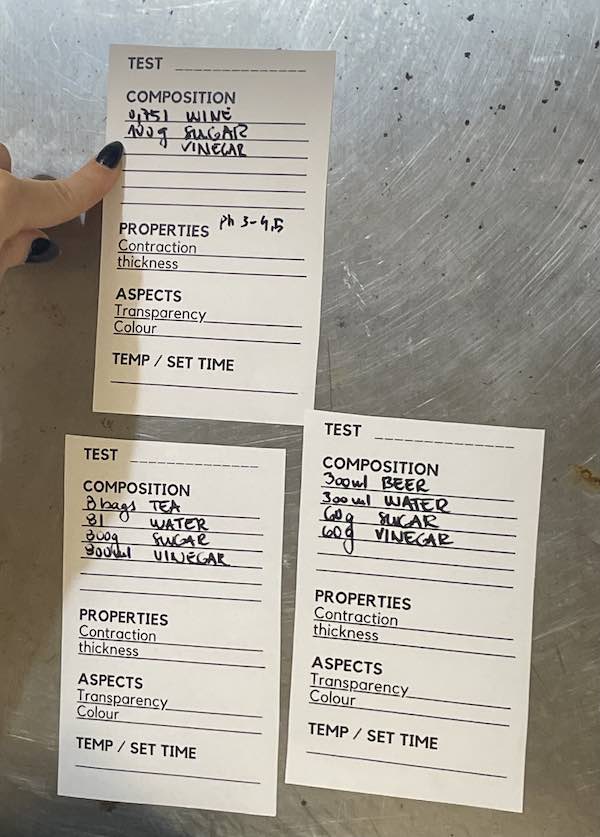 TEST
COMPOSITION
0,75l WINE
100g SUGAR
VINEGAR
PROPERTIES ph 3-4,5
Contraction
thickness
ASPECTS
Transparency
Colour
TEMP / SET TIME
TEST
COMPOSITION
8bags TEA
8l WATER
800g SUGAR
800ml VINEGAR
PROPERTIES
Contraction
thickness
ASPECTS
Transparency
Colour
TEMP / SET TIME
TEST
COMPOSITION
300ml BEER
300ml WATER
60g SUGAR
60g VINEGAR
PROPERTIES
Contraction
thickness
ASPECTS
Transparency
Colour
TEMP / SET TIME